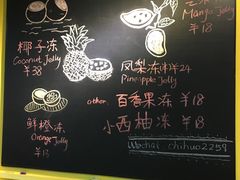 Mango Jelly
¥18
椰子冻
Coconut Jelly
¥38
凤梨冻(杯)¥24
Pineapple Jelly
other.
百香果冻 ¥18
鲜橙冻
Orange Jelly
¥13
小西柚冻 ¥18
Wechat chihuo2259